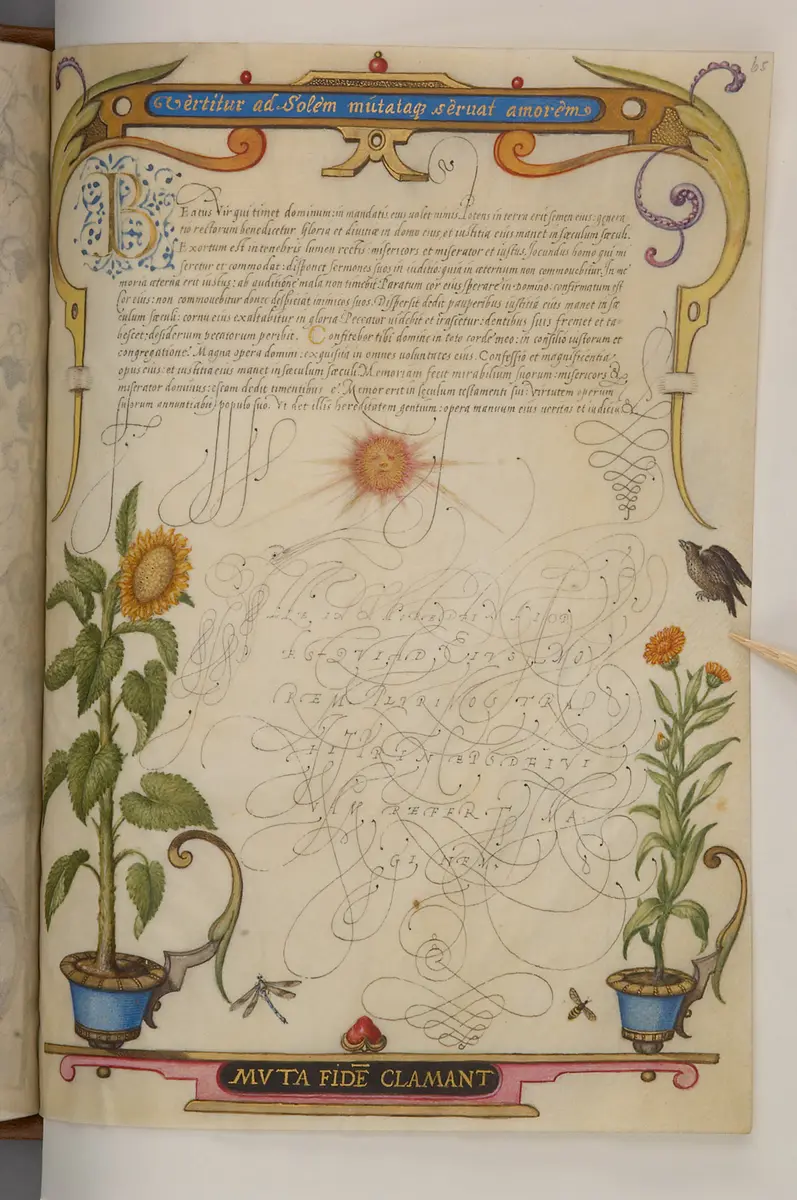 65
Vertitur ad Solem mutataq seruat amorem
Beatus Vir qui timet dominum: in mandatis eius uolet nimis. Potens in terra erit semen eius: genera
tio rectorum benedicetur. Gloria et diuitiæ in domo eius, et iustitia eius manet in sæculum sæculi.
Exortum est in tenebris lumen rectis: misericors et miserator et iustus. Jocundus homo qui mi
seretur et commodat: disponet sermones suos in iuditio: quia in æternum non commouebitur. In me
moria æterna erit iustus: ab auditione mala non timebit. Paratum cor eius sperare in Domino: confirmatum est
cor eius: non commouebitur donec despitiat inimicos suos. Dispersit dedit pauperibus iustitia eius manet in sæ
culum sæculi: cornu eius exaltabitur in gloria. Peccator uidebit et irascetur: dentibus suis fremet et ta-
bescet: desiderium peccatorum peribit. Confitebor tibi domine in toto corde meo: in consilio iustorum et
congregatione. Magna opera domini: exquisita in omnes uoluntates eius. Confessio et magnificentia
opus eius: et iustitia eius manet in sæculum sæculi. Memoriam fecit mirabilium suorum: misericors &
miserator dominus: escam dedit timentibus e. Memor erit in seculum testamenti sui: virtutem operum
suorum annuntiabit populo suo. Vt det illis hereditatem gentium: opera manuum eius ueritas et iudiciu
REM
IM REFERT MA
GINEM.
MVTA FIDĒ CLAMANT